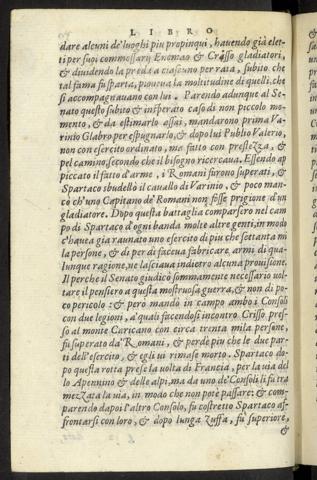 LIBRO
dare alcuni de' luoghi piu propinqui, hauendo già elet-
ti per suoi commessarij Enomao & Crasso gladiatori,
& diuidendo la preda a ciascuno per rata, subito che
tal fama fu sparta, pioueua la moltitudine di quelli che
si accompagnauano con lui. Parendo adunque al Se-
nato questo subito & insperato caso di non piccolo mo-
mento, & da estimarlo assai, mandarono prima Va-
rinio Glabro per espugnarlo, & dopo lui Publio Valerio,
non con esercito ordinato, ma fatto con prestezza, &
pel camino, secondo che il bisogno ricercaua. Essendo ap
piccato il fatto d'arme, i Romani furono superati, &
Spartaco isbudellò il cauallo di Varinio, & poco man-
cò ch'uno Capitano de' Romani non fosse prigione d'un
gladiatore. Dopo questa battaglia comparsero nel cam
po di Spartaco d'ogni banda molte altre genti, in modo
c'hauea già raunato uno esercito di piu che settanta mi
la persone, & di per dì faceua fabricare armi di qua-
lunque ragione, ne lasciaua indietro alcuna prouisione.
Il perche il Senato giudicò sommamente necessario uol-
tare il pensiero a questa mostruosa guerra, & non di po-
co pericolo: & però mandò in campo ambo i Consoli
con due legioni, a' quali facendosi incontro Crisso pres-
so al monte Garicano con circa trenta mila persone,
fu superato da' Romani, & perdè piu che le due par-
ti dell'esercito, & egli ui rimase morto. Spartaco do-
po questa rotta prese la uolta di Francia, per la uia del
lo Apennino & dello alpi, ma da uno de' Consoli li fu tra
mezzata la uia, in modo che non potè passare: & com-
parendo dapoi l'altro Consolo, fu costretto Spartaco af-
frontarsi con loro, & dopo lunga zuffa, fu superiore,
&